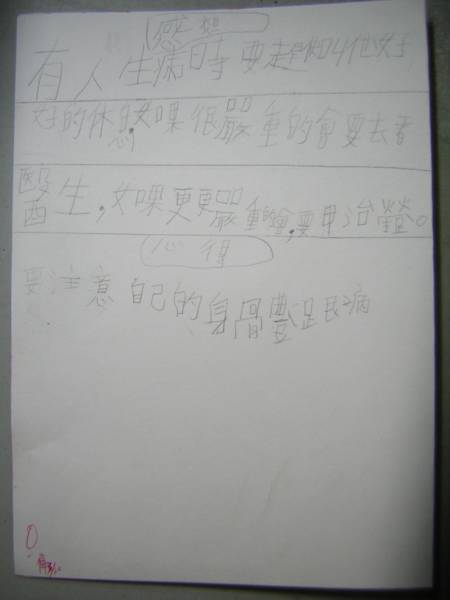 感想
有人生病時要趕緊叫他好
好的休息,如果很嚴重的會要去看
醫生,如果更更嚴重的會,要申治螢。
心得
要注意自己的身體跟疾病